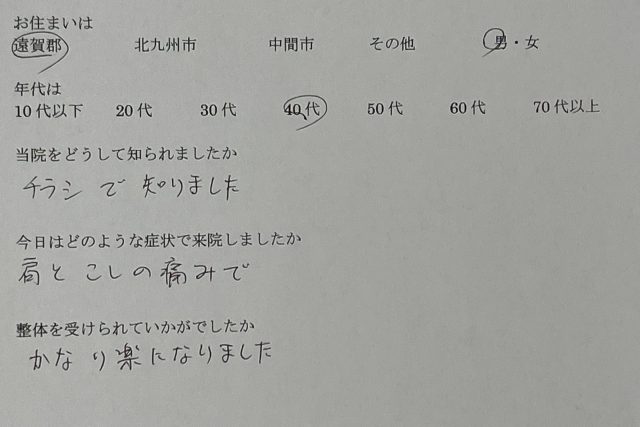 お住まいは
遠賀郡 北九州市 中間市 その他 男・女
年代は
10代以下 20代 30代 40代 50代 60代 70代以上
当院をどうして知られましたか
チラシで知りました
今日はどのような症状で来院しましたか
肩とこしの痛みで
整体を受けられていかがでしたか
かなり楽になりました